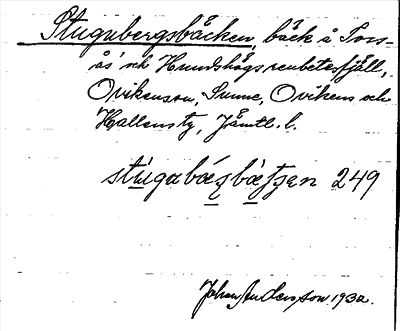 Stugubergsbäcken, bäck å Tors-
ås' och Hundshögs renbetesfjäll,
Ovikens sn, Sunne, Ovikens och
Hallens tg, Jämtl. l.
249
Johan Andersson 1932.